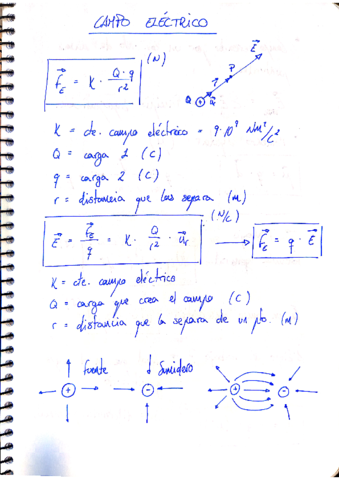 CAMPO ELÉCTRICO
F⃗_E = K · Q·q / r² (N)
E⃗
P
r⃗
Q ⊕ u⃗r
K = cte. campo eléctrico = 9·10⁹ Nm²/C²
Q = carga 1 (C)
q = carga 2 (C)
r = distancia que las separa (m)
E⃗ = F⃗_E / q = K · Q / r² · u⃗r (N/C) → F⃗_E = q · E⃗
K = cte. campo eléctrico
Q = carga que crea el campo (C)
r = distancia que la separa de un pto. (m)
Fuente Sumidero
+ - + -